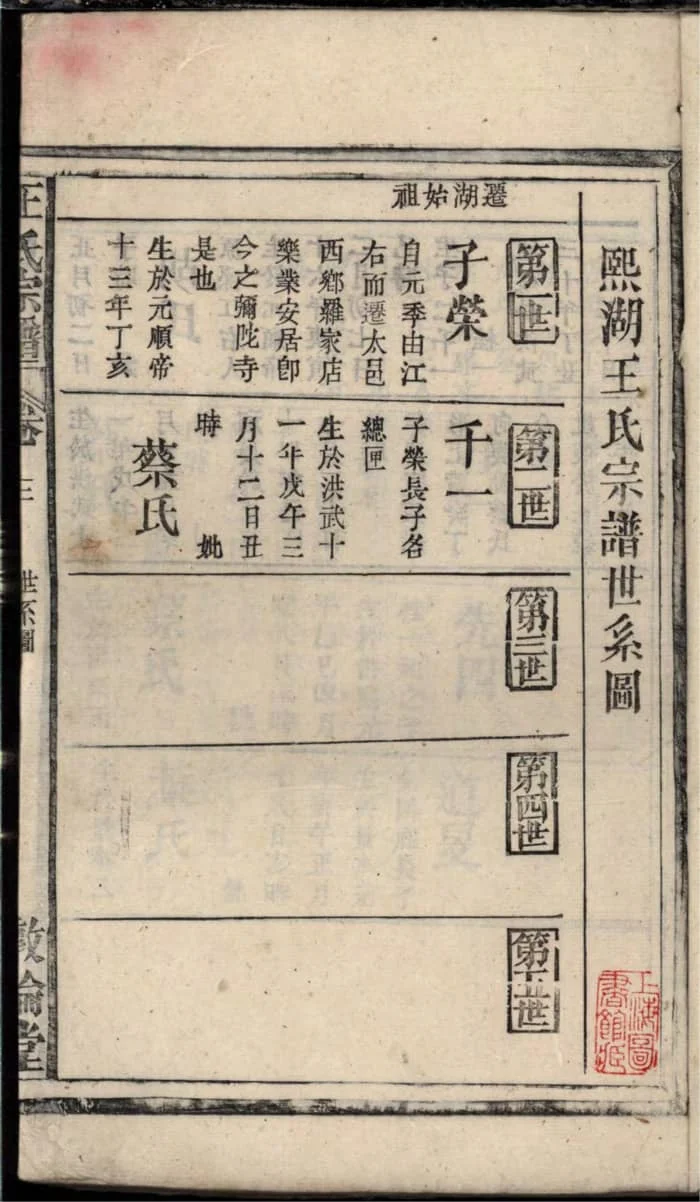 熙湖王氏宗譜世系圖
遷湖始祖
第一世
子榮
自元季由江
右而遷太邑
西鄉羅家店
樂業安居卽
今之彌陀寺
是也
生於元順帝
十三年丁亥
第二世
千一
子榮長子名
總匣
生於洪武十
一年戊午三
月十二日丑
時 妣
蔡氏
第三世
第四世
第五世
上海圖
書館藏
王氏宗譜
卷三
世系圖
敦倫堂